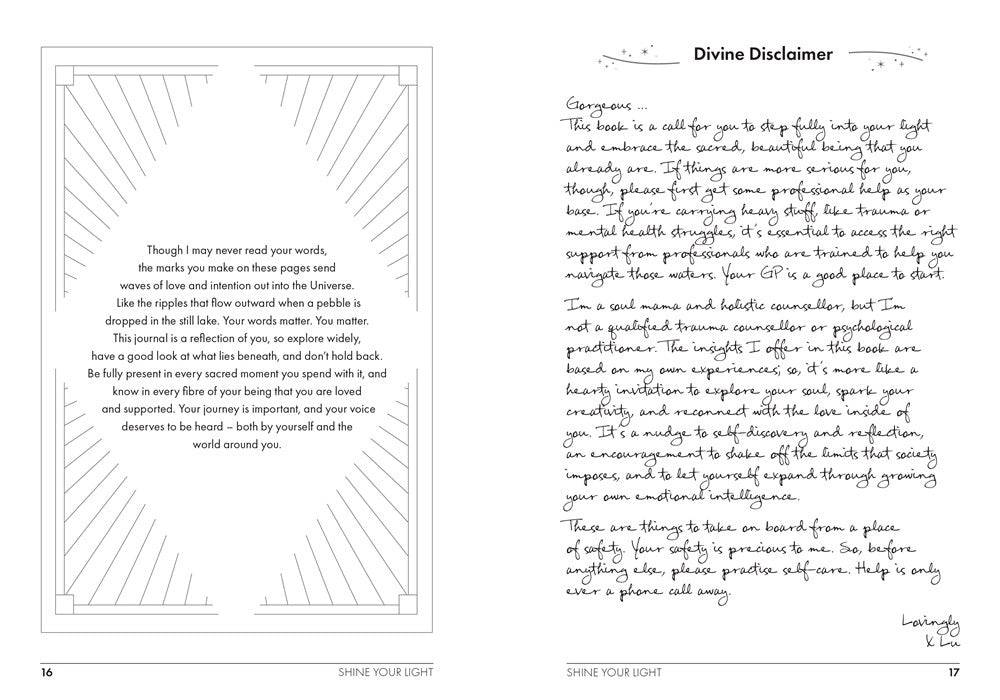 Though I may never read your words,
the marks you make on these pages send
waves of love and intention out into the Universe.
Like the ripples that flow outward when a pebble is
dropped in the still lake. Your words matter. You matter.
This journal is a reflection of you, so explore widely,
have a good look at what lies beneath, and don't hold back.
Be fully present in every sacred moment you spend with it, and
know in every fibre of your being that you are loved
and supported. Your journey is important, and your voice
deserves to be heard – both by yourself and the
world around you.
16
SHINE YOUR LIGHT
Divine Disclaimer
Gorgeous ...
This book is a call for you to step fully into your light
and embrace the sacred, beautiful being that you
already are. If things are more serious for you,
though, please first get some professional help as your
base. If you're carrying heavy stuff, like trauma or
mental health struggles, it's essential to access the right
support from professionals who are trained to help you
navigate those waters. Your GP is a good place to start.
I'm a soul mama and holistic counsellor, but I'm
not a qualified trauma counsellor or psychological
practitioner. The insights I offer in this book are
based on my own experiences; so, it's more like a
hearty invitation to explore your soul, spark your
creativity, and reconnect with the love inside of
you. It's a nudge to self-discovery and reflection,
an encouragement to shake off the limits that society
imposes, and to let yourself expand through growing
your own emotional intelligence.
These are things to take on board from a place
of safety. Your safety is precious to me. So, before
anything else, please practise self-care. Help is only
ever a phone call away.
Lovingly
X Lu
SHINE YOUR LIGHT
17